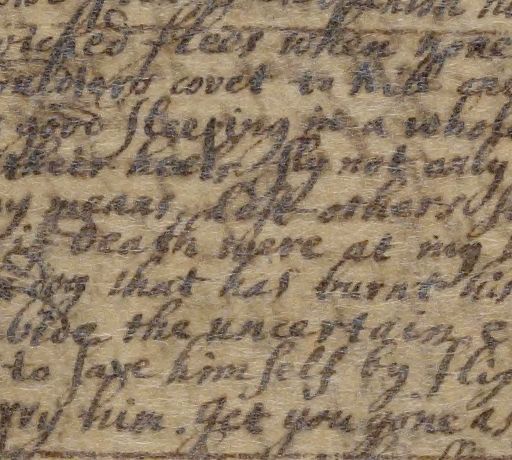 wicked flees when none
covet to kill
good sleeping in a whole
their heels fly not only
means, let others
if death were at my
dog that has burnt his
bide the uncertain &
to save himself by flig
him. get you gone as